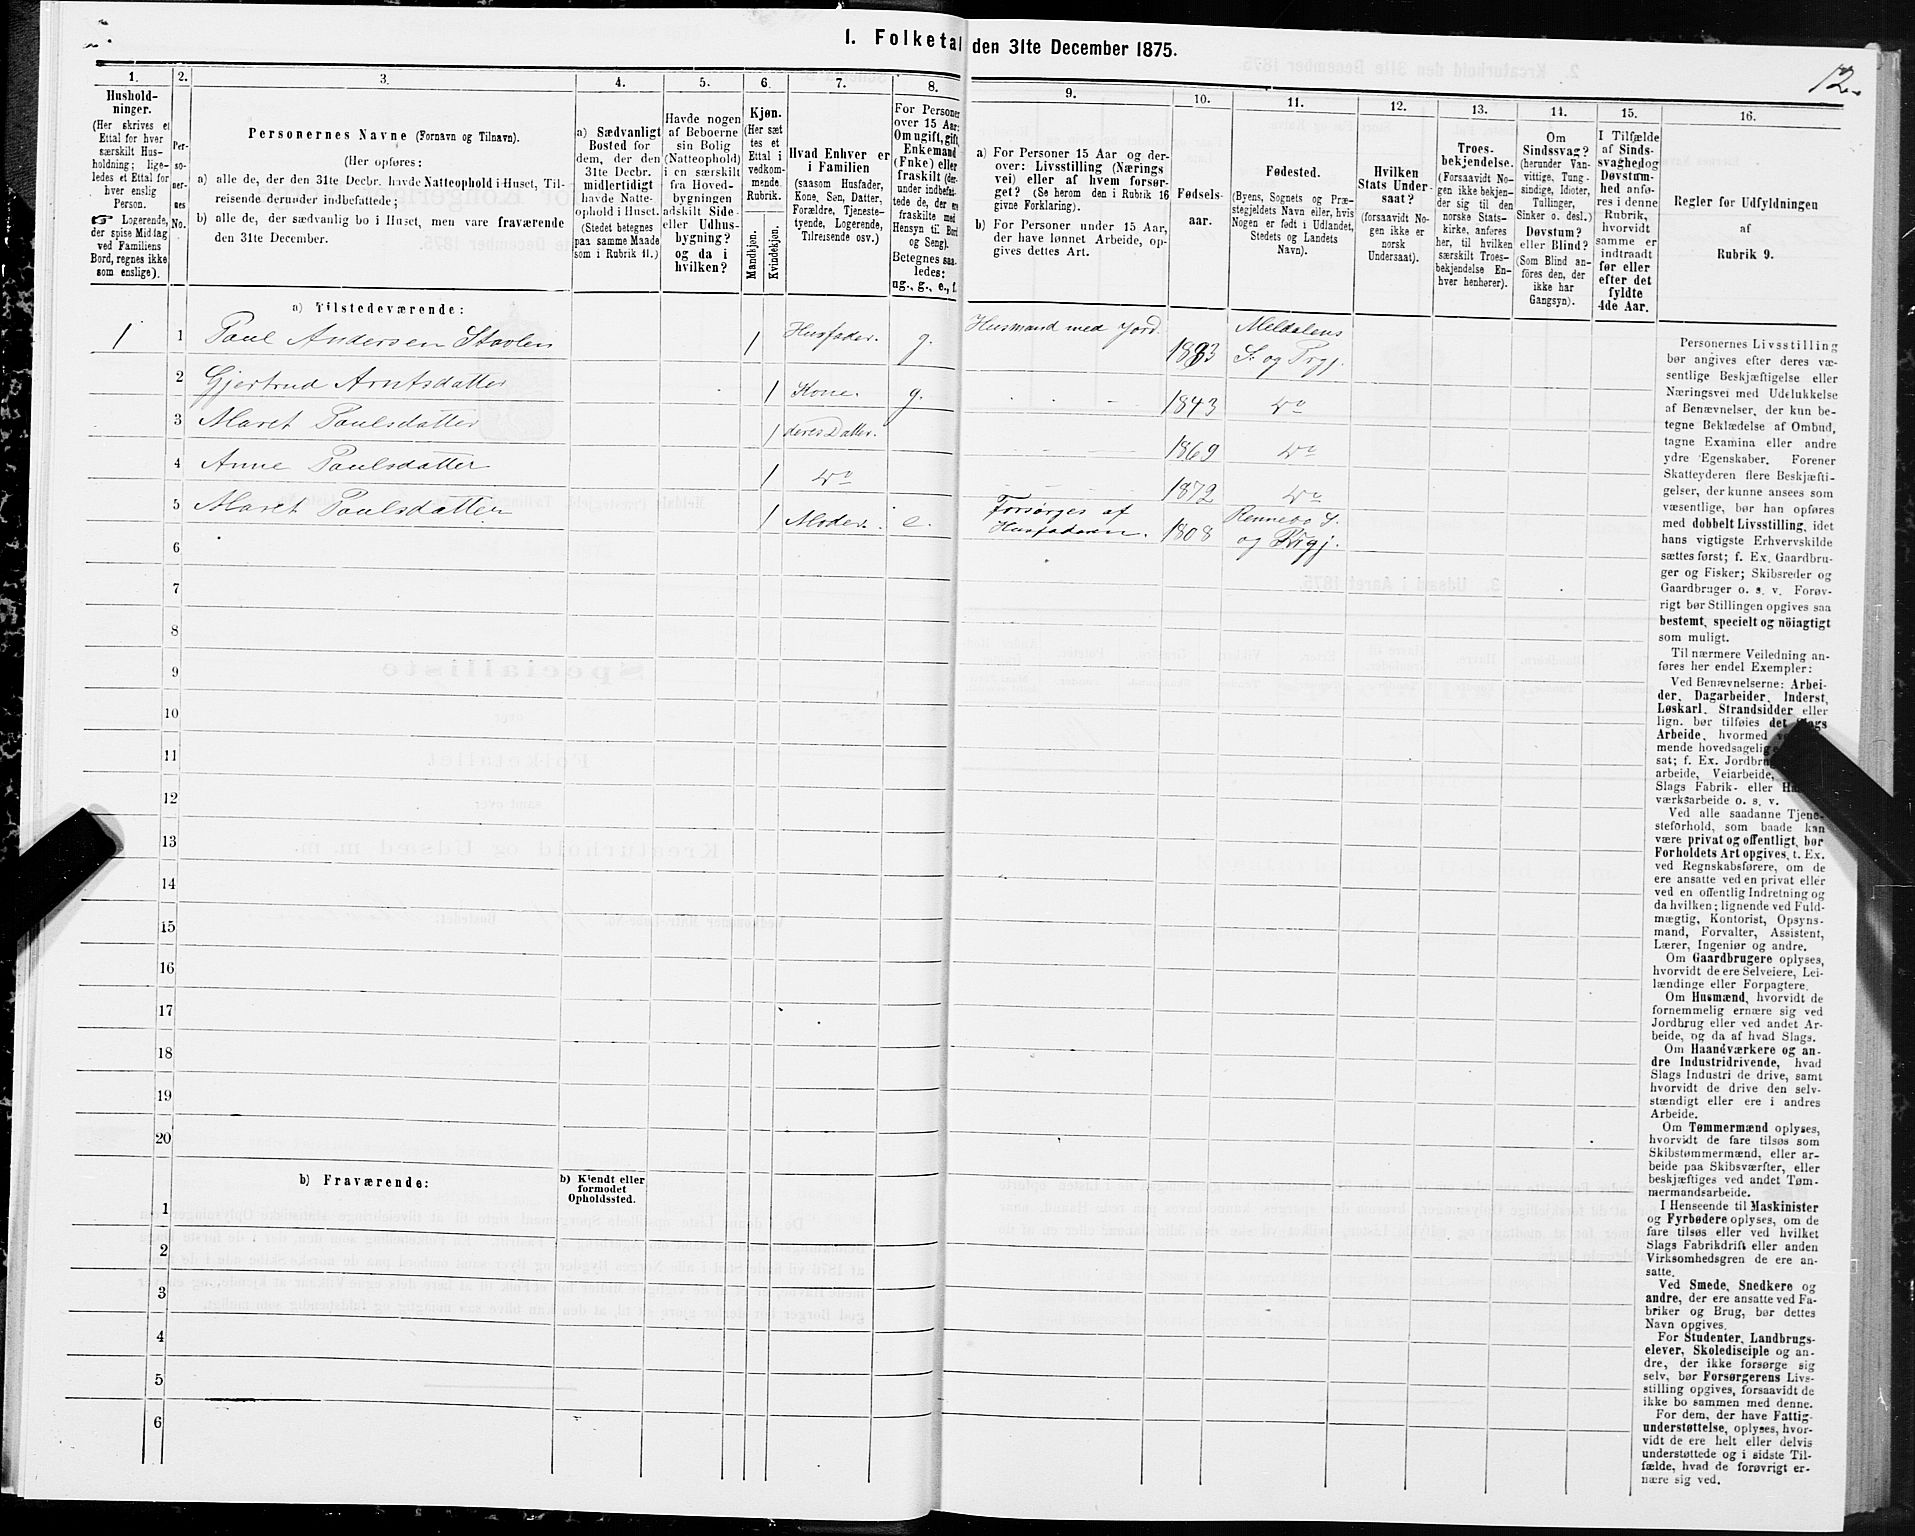 I. Folketal den 31te December 1875.
12.
1.
Hushold-
ninger.
(Her skrives et
Ettal for hver
særskilt Hus-
holdning; lige-
ledes et Ettal for
hver enslig
Person.
Logerende,
der spise Middag
ved Familiens
Bord, regnes ikke
som enslige).
2.
Per-
so-
ner-
nes
No.
3.
Personernes Navne (Fornavn og Tilnavn).
(Her opføres:
a) alle de, der den 31te Decbr. havde Natteophold i Huset, Til-
reisende derunder indbefattede;
b) alle de, der sædvanlig bo i Huset, men vare fraværende
den 31te December.
4.
a) Sædvanligt
Bosted for
dem, der den
31te Decbr.
midlertidigt
havde Natte-
ophold i Huset.
(Stedet betegnes
paa samme Maade
som i Rubrik 11.)
5.
Havde nogen
af Beboerne
sin Bolig
(Natteophold)
i en særskilt
fra Hoved-
bygningen
adskilt Side-
eller Udhus-
bygning?
og da i
hvilken?
6.
Kjøn.
(Her sæt-
tes et
Ettal i
vedkom-
mende
Rubrik.
Mandkjøn.
Kvindekjøn.
7.
Hvad Enhver er
i Familien
(saasom Husfader,
Kone, Søn, Datter,
Forældre, Tjeneste-
tyende, Logerende,
Tilreisende osv.)
8.
For Personer
over 15 Aar:
Om ugift, gift,
Enkemand
(Enke) eller
fraskilt (der-
under indbefat-
tede de, der ere
fraskilte med
Hensyn til Bord
og Seng).
Betegnes saa-
ledes:
ug., g., e., f.
9.
a) For Personer 15 Aar og der-
over: Livsstilling (Nærings
vei) eller af hvem forsør-
get? (Se herom den i Rubrik 16
givne Forklaring).
b) For Personer under 15 Aar,
der have lønnet Arbeide, op-
gives dettes Art.
10.
Fødsels-
aar.
11.
Fødested.
(Byens, Sognets og Præ-
stegjeldets Navn eller, hvis
Nogen er født i Udlandet,
Stedets og Landets
Navn).
12.
Hvilken
Stats Under-
saat?
(forsaavidt No-
gen ikke er
norsk
Undersaat).
13.
Troes-
bekjendelse.
(Forsaavidt No-
gen ikke bekjen-
der sig til den
norske Stats-
kirke, anføres
her, til hvilken
særskilt Troes-
bekjendelse En-
hver henhører).
14.
Om
Sindssvag?
(herunder Van-
vittige, Tung-
sindige, Idioter,
Tullinger,
Sinker o. desl.)
Døvstum?
eller Blind?
(Som Blind an-
føres den, der
ikke har
Gangsyn).
15.
I Tilfælde
af Sinds-
svaghed og
Døvstum-
hed anfø-
res i denne
Rubrik,
hvorvidt
samme er
indtraadt
før eller
efter det
fyldte
4de Aar.
16.
Regler for Udfyldningen
af
Rubrik 9.
a) Tilstedeværende:
1 1 Paul Andersen Stavlen 1 Husfader. g. Husmand med Jord. Meldalens
S. og Prgj.
2 Gjertrud Arntsdatter 1 Kone. g. 1843 Do
3 Maret Paulsdatter 1 deres Datter. 1869 Do
4 Anne Paulsdatter 1 Do 1872 Do
5 Maret Paulsdatter 1 Moder. e. Forsørges af
Husfaderen. 1808 Rennebo S.
og Prgj.
6
7
8
9
10
11
12
13
14
15
16
17
18
19
20
b) Fraværende:
b) Kjendt eller
formodet
Opholdssted.
1
2
3
4
5
6
Personernes Livsstilling
bør angives efter deres væ-
sentlige Beskjæftigelse eller
Næringsvei med Udelukkelse
af Benævnelser, der kun be-
tegne Beklædelse af Ombud,
tagne Examina eller andre
ydre Egenskaber. Forener
Skatteyderen flere Beskjæfti-
gelser, der kunne ansees som
væsentlige, bør han opføres
med dobbelt Livsstilling, idet
hans vigtigste Erhvervskilde
sættes først; f. Ex. Gaardbru-
ger og Fisker; Skibsreder og
Gaardbruger o. s. v. Forøv-
rigt bør Stillingen opgives saa
bestemt, specielt og nöiagtigt
som muligt.
Til nærmere Veiledning an-
føres her endel Exempler:
Ved Benævnelserne: Arbei-
der, Dagarbeider, Inderst,
Løskarl, Strandsidder eller
lign. bør tilføies det Slags
Arbeide, hvormed
mende hovedsagelig
sat; f. Ex. Jordbrug
arbeide, Veiarbeide,
Slags Fabrik- eller
værksarbeide o. s. v.
Ved alle saadanne Tjene-
steforhold, som baade kan
være privat og offentligt, bør
Forholdets Art opgives, t. Ex.
ved Regnskabsførere, om de
ere ansatte ved en privat eller
ved en offentlig Indretning og
da hvilken; lignende ved Fuld-
mægtig, Kontorist, Opsyns-
mand, Forvalter, Assistent,
Lærer, Ingeniør og andre.
Om Gaardbrugere oplyses,
hvorvidt de ere Selveiere, Lei-
lændinge eller Forpagtere.
Om Husmænd, hvorvidt de
fornemmelig ernære sig ved
Jordbrug eller ved andet Ar-
beide, og da af hvad Slags.
Om Haandværkere og an-
dre Industridrivende, hvad
Slags Industri de drive, samt
hvorvidt de drive den selv-
stændigt eller ere i andres
Arbeide.
Om Tømmermænd oplyses,
hvorvidt de fare tilsøs som
Skibstømmermænd, eller ar-
beide paa Skibsværfter, eller
beskjæftiges ved andet Tøm-
mermandsarbeide.
I Henseende til Maskinister
og Fyrbødere oplyses, om de
fare tilsøs eller ved hvilket
Slags Fabrikdrift eller anden
Virksomhedsgren de ere an-
satte.
Ved Smede, Snedkere og
andre, der ere ansatte ved Fa-
briker og Brug, bør dettes
Navn opgives.
For Studenter, Landbrugs-
elever, Skoledisciple og an-
dre, der ikke forsørge sig
selv, bør Forsørgerens Livs-
stilling opgives, forsaavidt de
ikke bo sammen med denne.
For dem, der have Fattig-
understøttelse, oplyses, hvor-
vidt de ere helt eller delvis
understøttede og i sidste Til-
fælde, hvad de forøvrigt er-
nære sig ved.